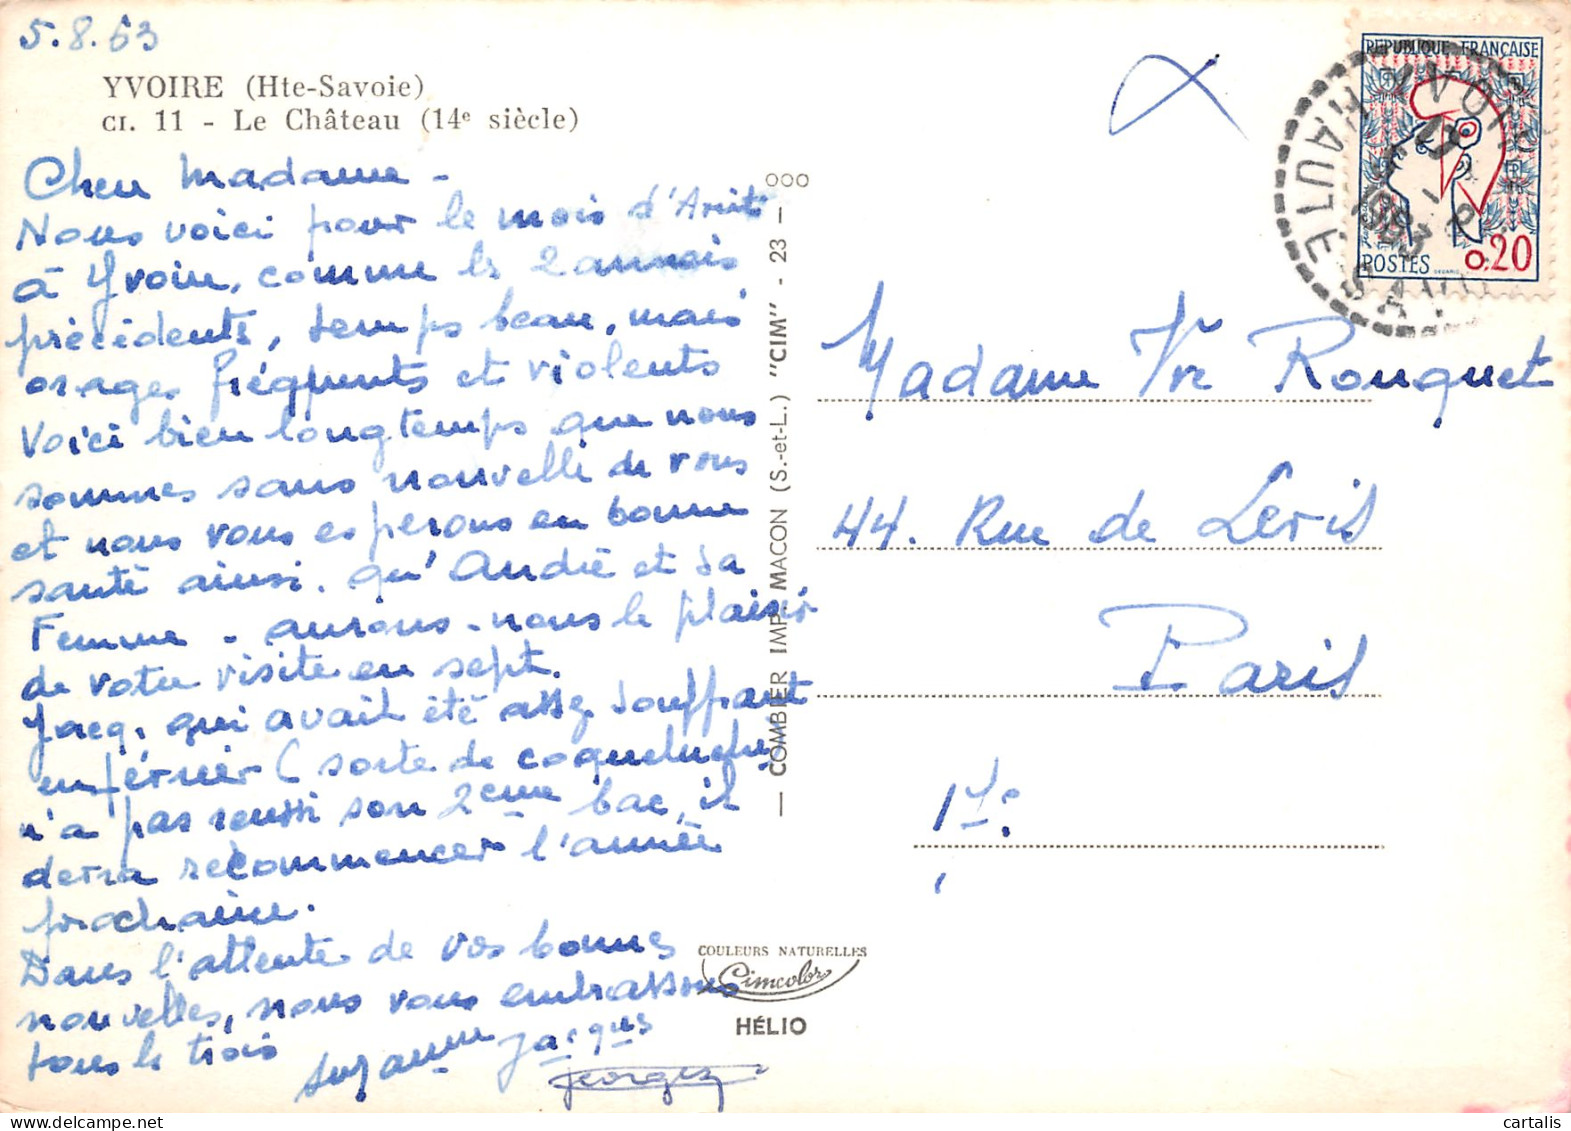 5.8.63
YVOIRE (Hte-Savoie)
CI. 11 - Le Château (14e siècle)
Cher Madame -
Nous voici pour le mois d'Aout
à Yvoire, comme les 2 années
précédents, temps beau, mais
orages fréquents et violents
Voici bien longtemps que nous
sommes sans nouvelle de vous
et nous vous esperons en bonne
santé ainsi. qu'André et sa
Femme - aurons-nous le plaisir
de votre visite en sept.
Jacq. qui avait été assez souffrant
en février (sorte de coqueluche)
n'a pas réussi son 2eme bac, il
devra recommencer l'année
prochaine.
Dans l'attente de vos bonnes
nouvelles, nous vous embrassons
tous les trois
Suzanne Jacques
Georges
COMBIER IMP. MACON (S.-et-L.) "CIM" - 23 - 000
COULEURS NATURELLES
Cimcolor
HÉLIO
REPUBLIQUE FRANÇAISE
POSTES 0.20
YVOIRE
HAUTE SAVOIE
1963
Madame Vve Rouquet
44. Rue de Leris
Paris
cartalis